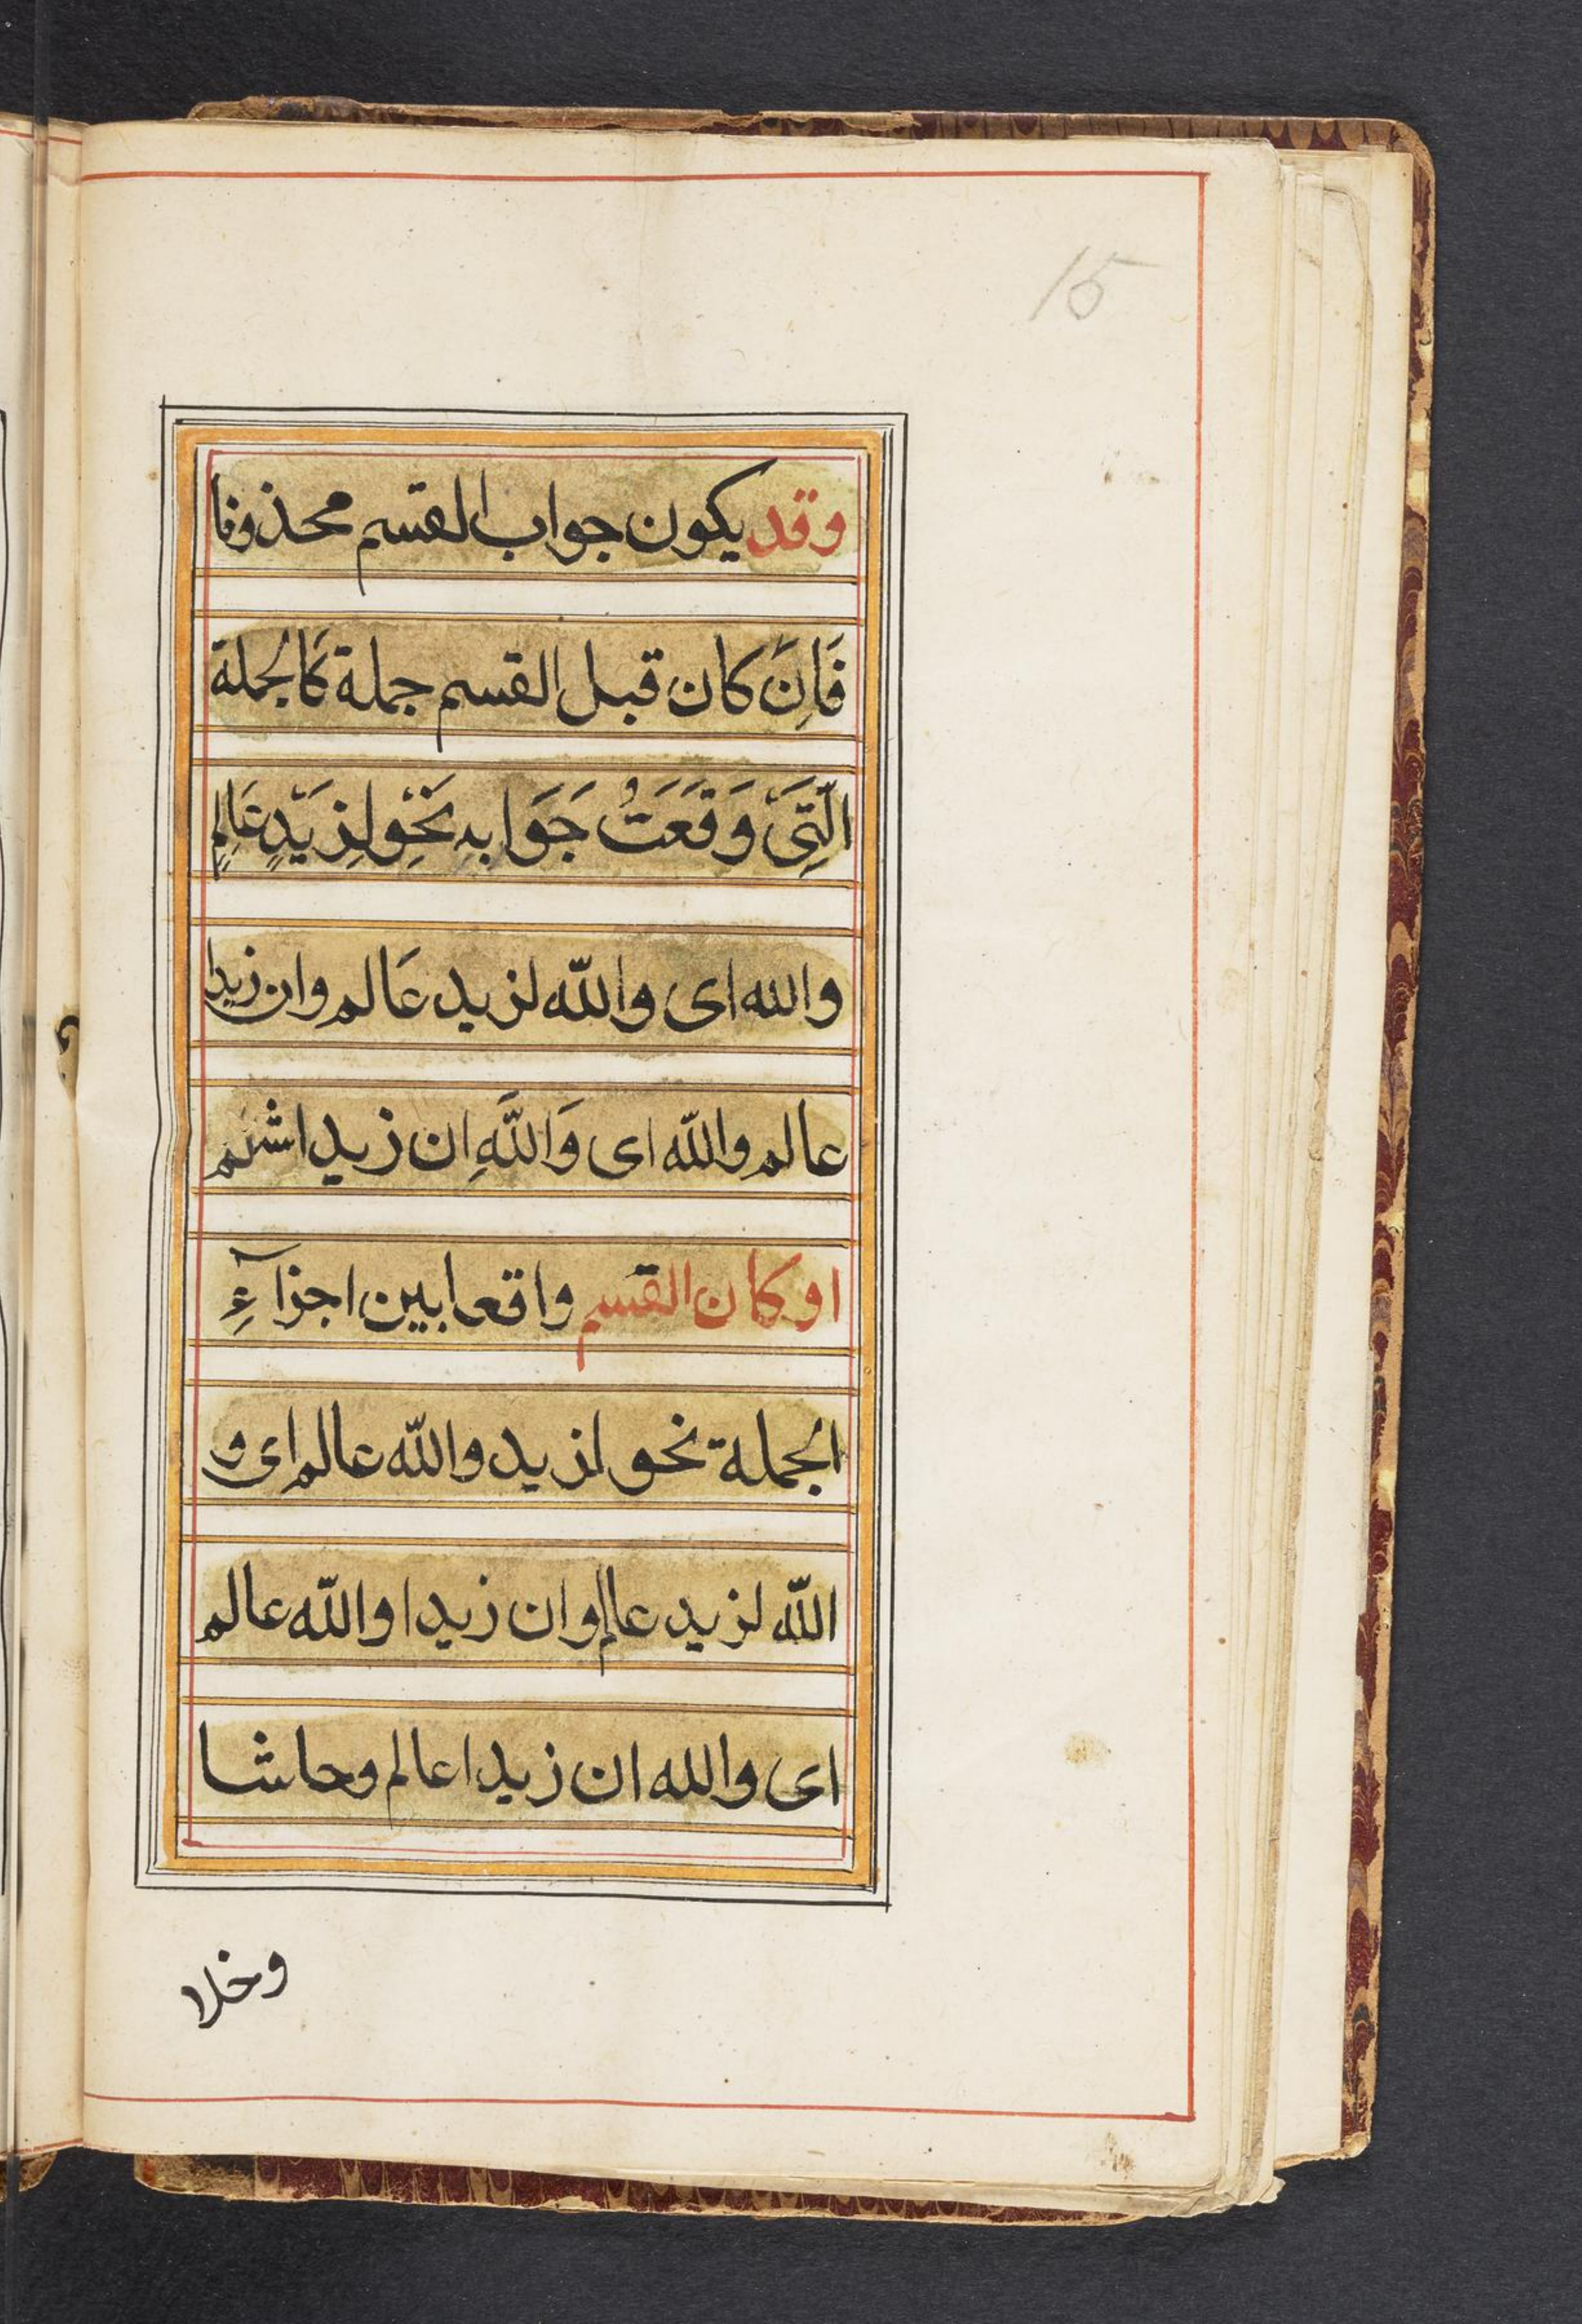 15
وقد يكون جواب القسم محذوفا
فَاِنَ كان قبل القسم جملة كَالجملة
الَّتِىَ وَقَعَتُ جَوَابهِ نَحْوِ لِزَيَدٍ عَالِمٍ
والله اى واللّه لزيد عَالم وان زيدا
عالم واللّه اى وَاللَّهِ ان زيدا
او كان القسم واقعا بين اجزآءِ
الجملة نحو لزيد واللّه عالم اى و
اللّه لزيد عالم وان زيدا واللّه عالم
اى والله ان زيدا عالم وحاشا
وخلا